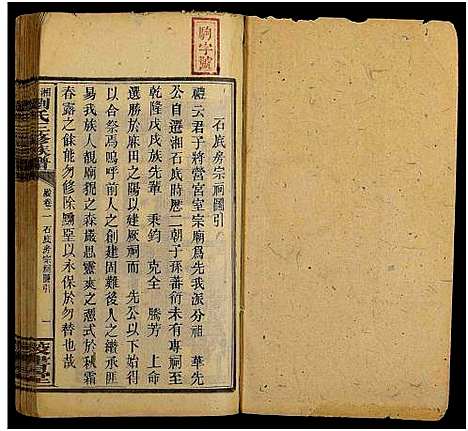 駒字號
石底房宗祠圖引
禮云君子將營宮室宗廟為先我派分祖　華先
公自遷湘石底時歷二朝子孫蕃衍未有專祠至
乾隆戊戌族先輩　秉鈞　克全　騰芳　上命
選勝於麻田之陽以建厥祠而　先公以下始得
以合祭焉嗚呼前人之創建固難後人之繼承匪
易我族人覩廟貌之森嚴思靈爽之憑式於秋霜
春露之餘能勿修除黝堊以永保於勿替也哉
湘劉氏三修族譜
卷一　石底房宗祠圖引　一